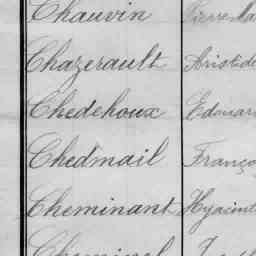 Chauvin Pierre Ma
Chazerault Aristide
Chedehoux Edouar
Chedmail Franço
Cheminant Hyacint
Cheminel